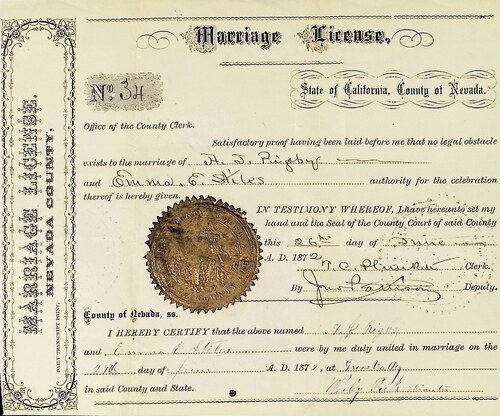 Marriage License,
No 34
State of California, County of Nevada.
Office of the County Clerk.
Satisfactory proof having been laid before me that no legal obstacle
exists to the marriage of H. J. Rigby
and Emma E. Stiles authority for the celebration
thereof is hereby given.
IN TESTIMONY WHEREOF, I have hereunto set my
hand and the Seal of the County Court of said County
this 26th day of June
A. D. 1872
T. C. Clerk.
By Deputy.
County of Nevada, ss.
I HEREBY CERTIFY that the above named H. J. Rigby
and Emma E Stiles were by me duly united in marriage on the
27th day of June A. D. 1872, at Grass Valley
in said County and State.
MARRIAGE LICENSE.
NEVADA COUNTY.
DAILY TRANSCRIPT PRINT.